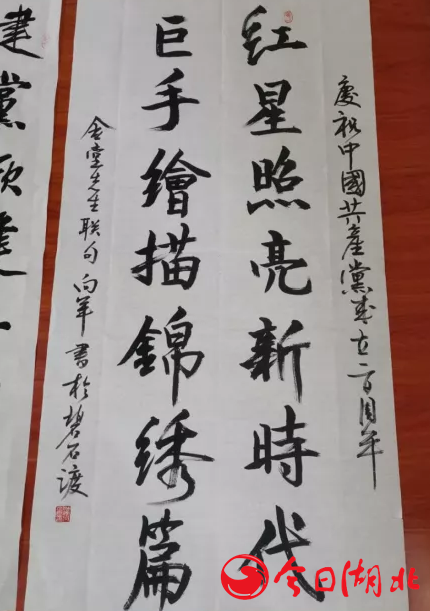 慶祝中國共產黨成立一百周年
红星照亮新時代
巨手繪描錦绣篇
堂先生联句 書於碧石渡
建黨
今日湖北